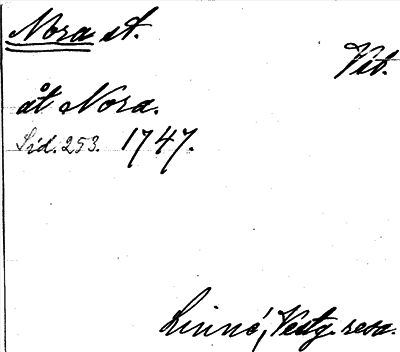 Nora st.
Vit.
åt Nora.
Sid. 253. 1747.
Linné, Vestg. resa.